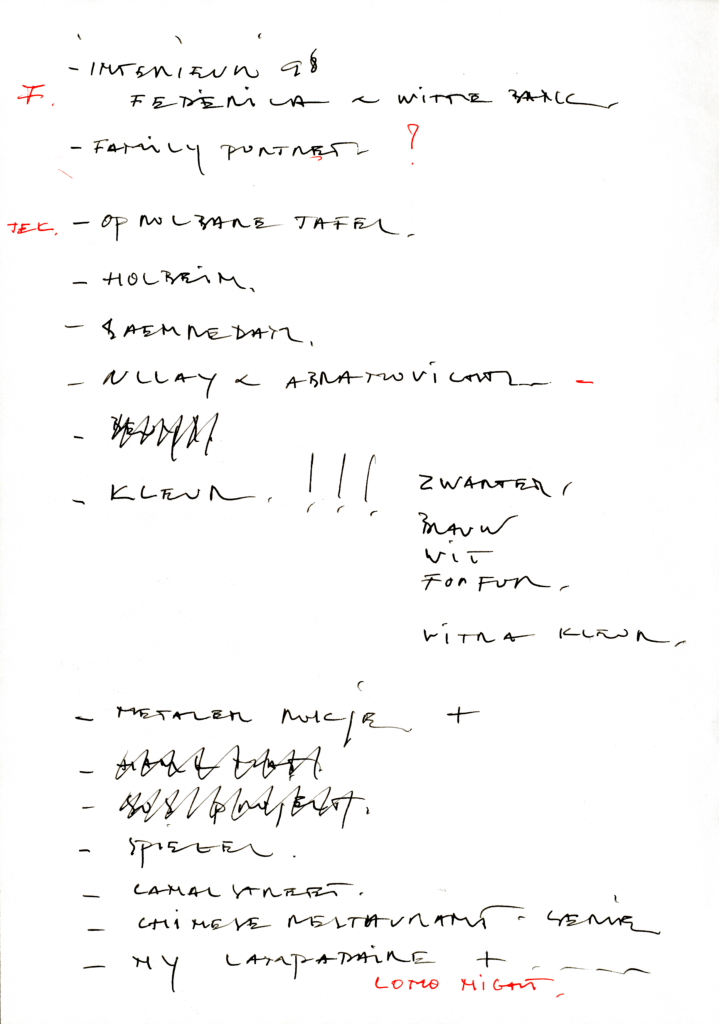 - INTERIEUR 98
F. FEDERICA & WITTE BANK.
- FAMILY PORTRET ?
JEK. - OP ROLBARE TAFEL.
- HOLBEIN.
- SAENREDAM.
- ULLAY & ABRAMOVICH -
-
- KLEUR. !!! ZWARTER,
BLAUW
WIT
FOR FUN.
VITRA KLEUR.
- METALEN ROKJE +
-
-
- SPIEGEL.
- CANAL STREET.
- CHINESE RESTAURANT - SERIE
- MY LAMPADAIRE +
LONO NIGHT.